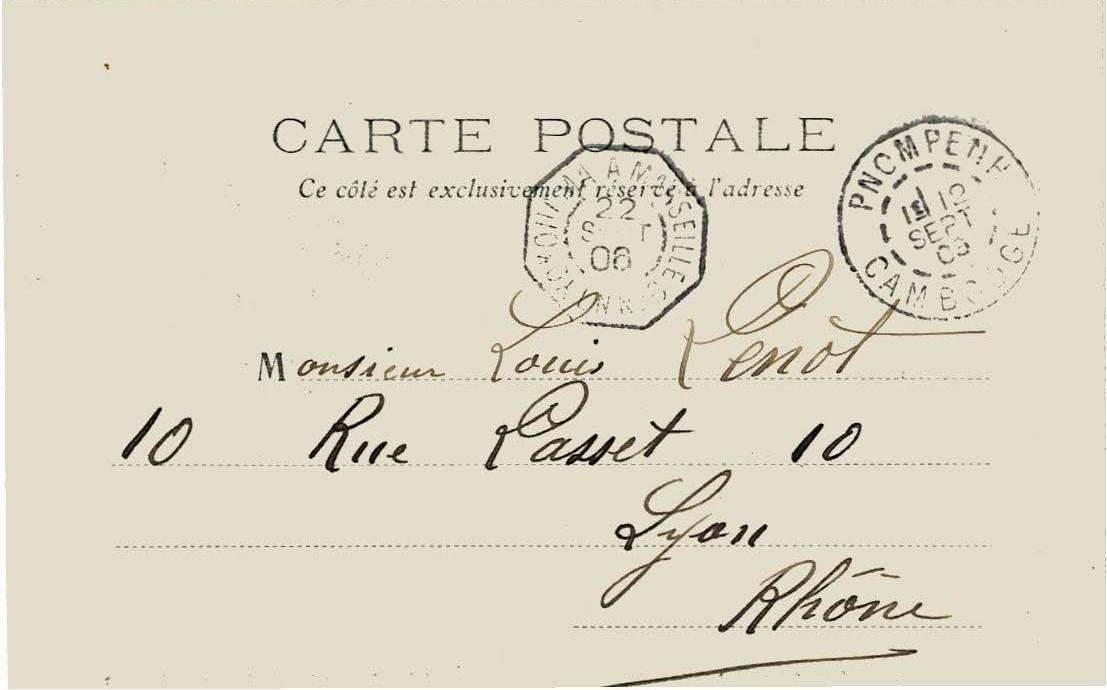 CARTE POSTALE
Ce côté est exclusivement réservé à l'adresse
YOKOHAMA A MARSEILLE
22
SEPT
06
PNOMPENH
SEPT
06
CAMBODGE
Monsieur Louis Lenot
10 Rue Passet 10
Lyon
Rhône